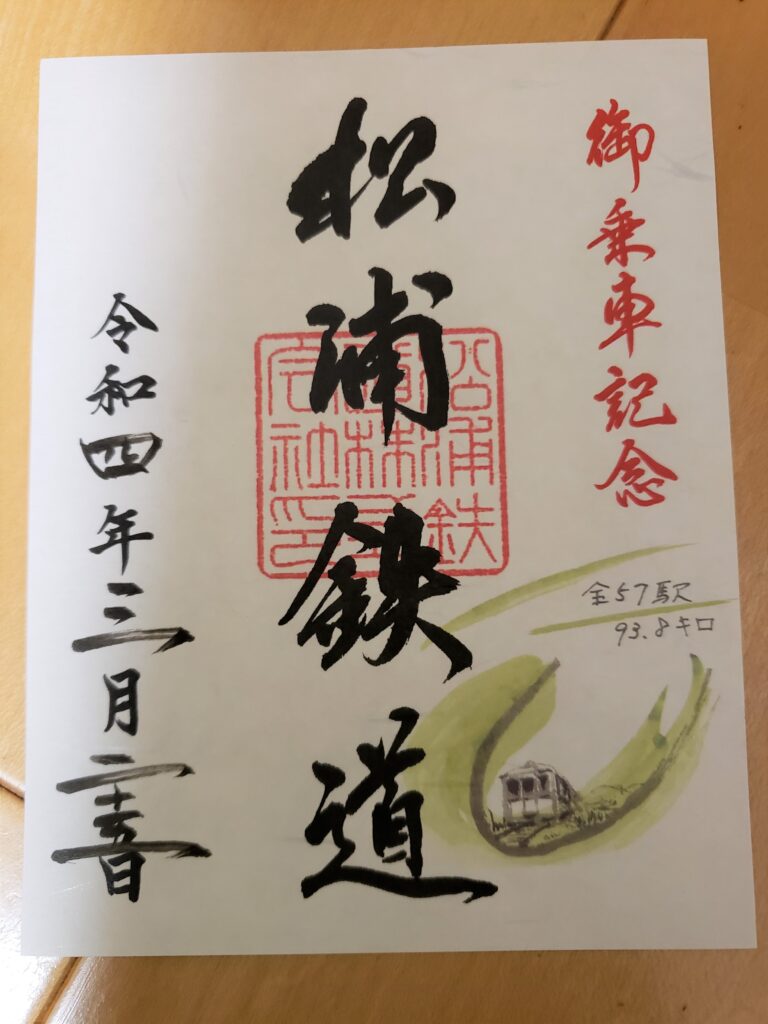 御乗車記念
松浦鉄道
松浦鉄
道株式
会社印
全57駅
93.8キロ
令和四年三月二十五日